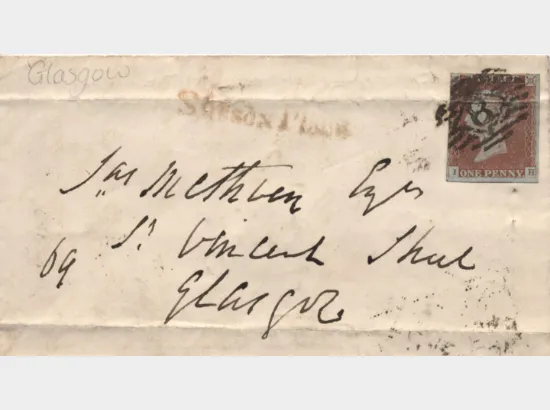 Glasgow
8
ONE PENNY
Jas Methven Esqr
69 St Vincent Street
Glasgow